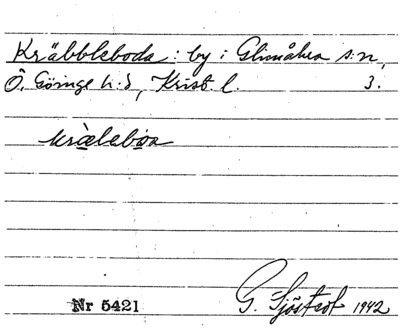 Kräbbleboda: by i Glimåkra s:n,
Ö. Göinge h:d, Krist. l. 3.
kràleboa
Nr 5421 G. Sjöstedt 1942